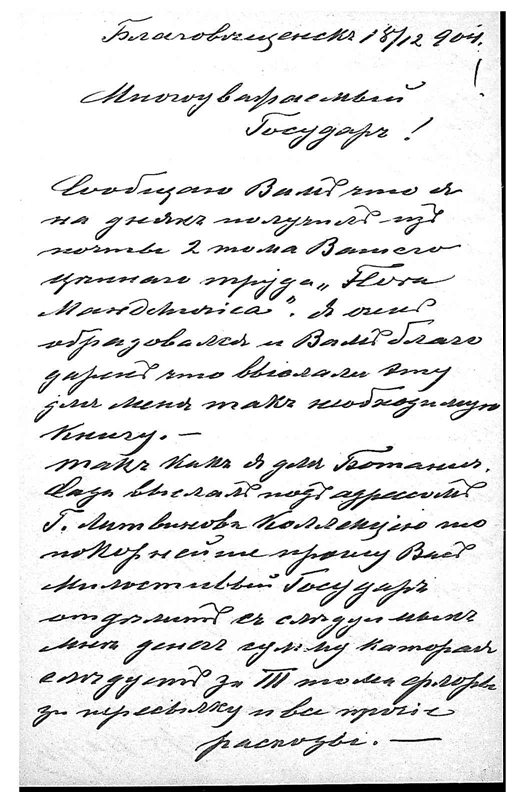 Благовѣщенскъ 18/12 904.
Многоуважаемый
Государь!
Сообщаю Вамъ что я
на дняхъ получилъ изъ
почты 2 тома Вашего
цѣннаго труда „Flora
Manshurica“. Я очень
обрадовался и Вамъ благо
даренъ что выслали эту
для меня такъ необходимую
книгу.—
такъ какъ я для Ботанич.
Сада выслалъ подъ адресомъ
Г. Литвинова коллекцію то
покорнейше прошу Васъ
Милостивый Государь
отдѣлить съ слѣдуемыхъ
мнѣ денегъ сумму каторая
слѣдуетъ за III тома флоры
за пересылку и все прочіе
расходы.—